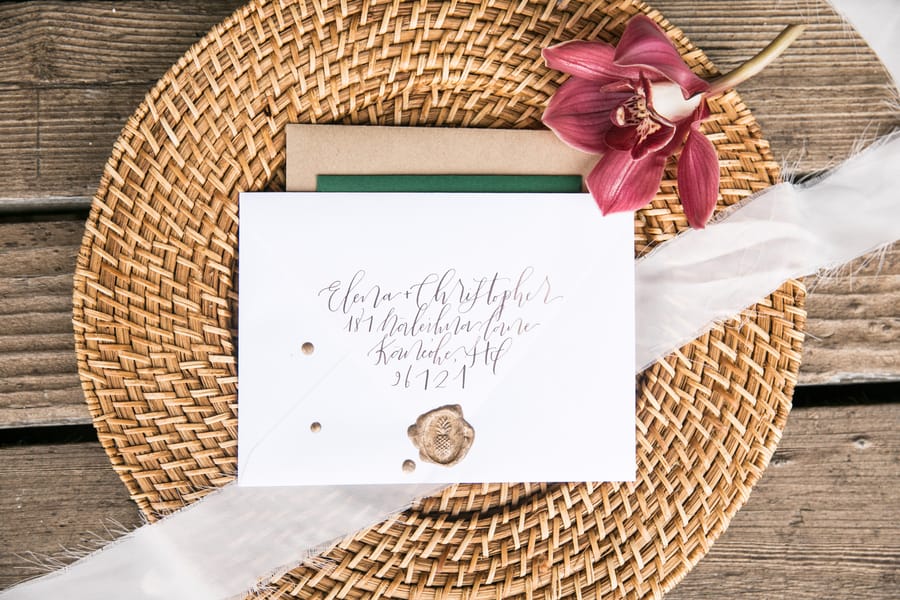 Elena + Christopher
181 Maleilma Lane
Kaneohe, HI
96121